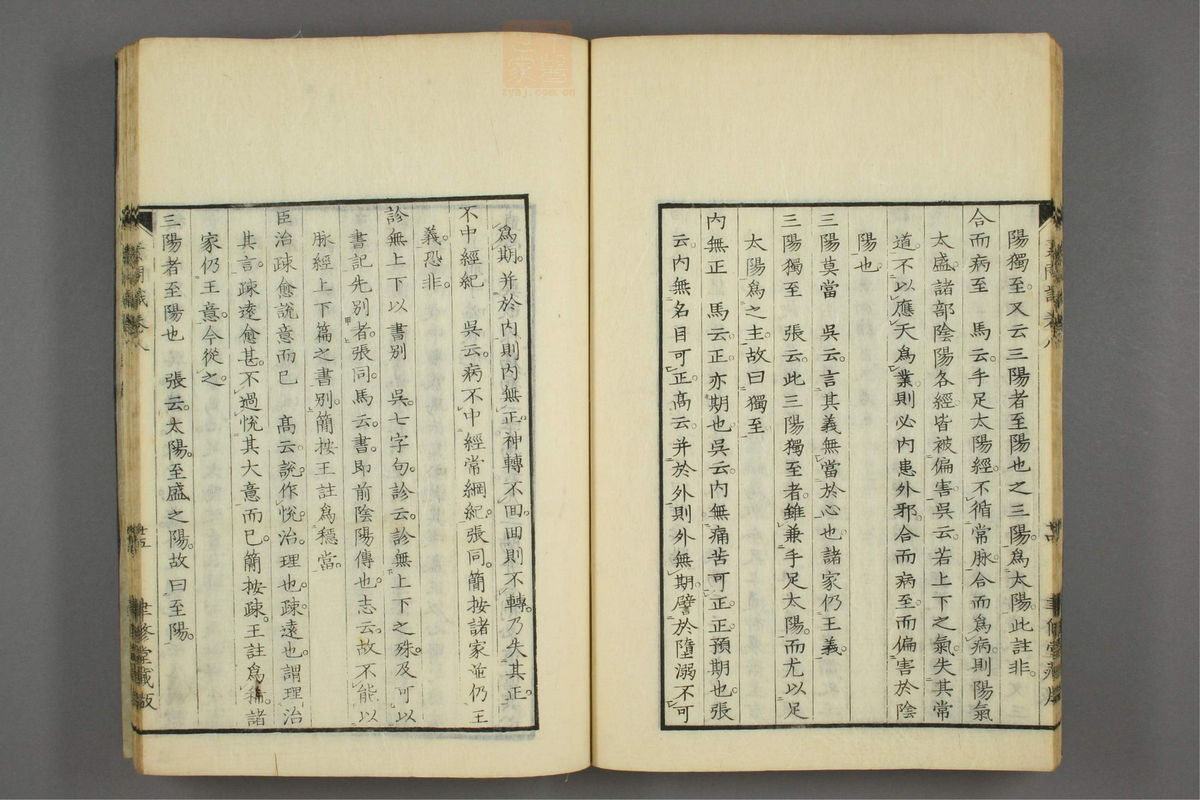 陽獨至又云三陽者至陽也之三陽爲太陽此註非
合而病至　馬云手足太陽經不循常脉合而爲病則陽氣
太盛諸部陰陽各經皆被偏害吳云若上下之氣失其常
道不以應天爲業則必内患外邪合而病至而偏害於陰
陽也
三陽莫當　吳云言其義無當於心也諸家仍王義
三陽獨至　張云此三陽獨至者雖兼手足太陽而尤以足
太陽爲之主故曰獨至
内無正　馬云正亦期也吳云内無痛苦可正正預期也張
云内無名目可正高云并於外則外無期譬於墮溺不可
爲期并於内則内無正神轉不回回則不轉乃失其正
不中經紀　吳云病不中經常綱紀張同簡按諸家並仍王
義恐非
診無上下以書别　吳七字句診云診無上下之殊及可以
書記先别者張同馬云書即前陰陽傳也志云故不能以
脉經上下篇之書别簡按王註爲穩當
臣治疎愈説意而已　高云説作悅治理也疎遠也謂理治
其言疎遠愈甚不過悅其大意而已簡按疎王註爲稀諸
家仍王意今從之
三陽者至陽也　張云太陽至盛之陽故曰至陽
素問識卷八
廿五
聿修堂藏版